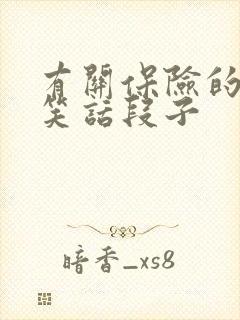 有關保險的
笑話段子
暗香_xs8